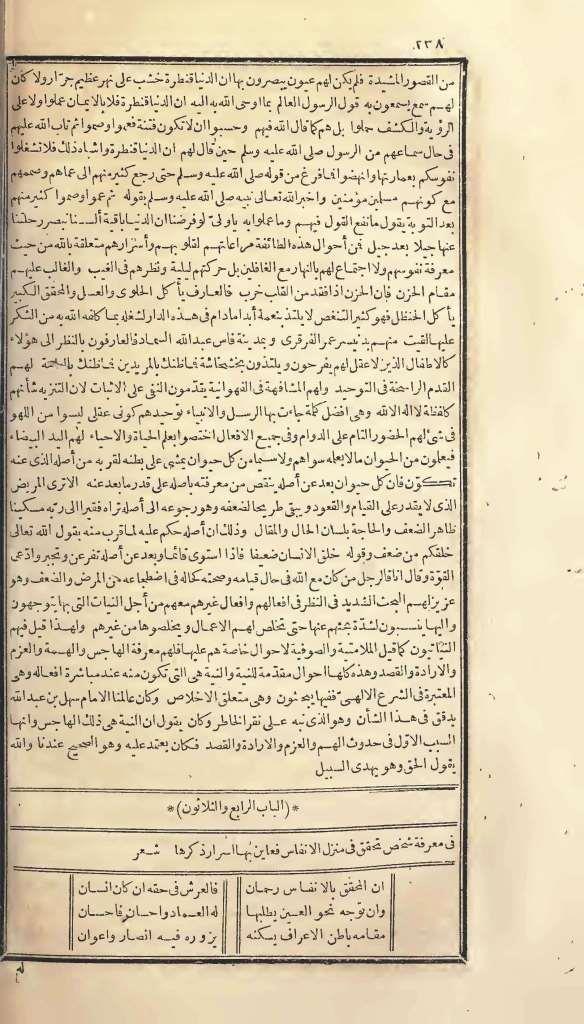 ٢٣٨
من القصور المشيدة فلم يكن لهم عيون يبصرون بها ان الدنيا قنطرة خشب على نهر عظيم جرّار ولا كان
لهم سمع يسمعون به قول الرسول العالم بما اوحى الله به اليه ان الدنيا قنطرة فلا بالايمان عملوا ولا على
الرؤية والكشف حصلوا بل هم كما قال الله فيهم وحسبوا ان لا تكون فتنة فعموا وصموا ثم تاب الله عليهم
فى حال سماعهم من الرسول صلى الله عليه وسلم حين قال لهم ان الدنيا قنطرة واشباه ذلك فلا تشغلوا
نفوسكم بعمارتها وانهضوا فما فرغ من قوله صلى الله عليه وسلم حتى رجع كثير منهم الى عماهم وصممهم
مع كونهم مسلمين مؤمنين واخبر الله تعالى نبيه صلى الله عليه وسلم بقوله ثم عموا وصموا كثير منهم
بعد التوبة يقول ما نفع القول فيهم وما عملوا به ياولىّ لو فرضنا ان الدنيا باقية ألسنا نبصر رحلتنا
عنها جيلا بعد جيل فمن أحوال هذه الطائفة مراعاتهم لقلوبهم وأسرارهم متعلقة بالله من حيث
معرفة نفوسهم ولا اجتماع لهم بالنهار مع الغافلين بل حركتهم ليلية ونظرهم فى الغيب والغالب عليهم
مقام الحزن فإن الحزن اذا فقد من القلب خرب فالعارف يأكل الحلوى والعسل والمحقق الكبير
يأكل الحنظل فهو كثير التنغص لا يلتذ بنعمة أبدا مادام فى هذه الدار لشغله بما كلفه الله به من الشكر
عليها لقيت منهم بدنيسر عمر الفرقرى وبمدينة فاس عبد الله السماد فالعارفون بالنظر الى هؤلاء
كالاطفال الذين لا عقل لهم يفرحون ويلتذون بخشخاشة فما ظنك بالمريدين فما ظنك بالعامة لهم
القدم الراسخة فى التوحيد ولهم المشافهة فى الفهوانية يقدّمون النفى على الاثبات لان التنزيه شأنهم
كلفظة لا اله الا الله وهى افضل كلمة جاءت بها الرسل والانبياء توحيدهم كونى عقلى ليسوا من اللهو
فى شئ لهم الحضور التام على الدوام وفى جميع الافعال اختصوا بعلم الحياة والاحياء لهم اليد البيضاء
فيعلمون من الحيوان ما لا يعلمه سواهم ولا سيما من كل حيوان يمشى على بطنه لقربه من أصله الذى عنه
تكوّن فان كل حيوان يبعد عن أصله ينقص من معرفته بأصله على قدر ما بعد عنه الا ترى المريض
الذى لا يقدر على القيام والقعود ويبقى طريحا لضعفه وهو رجوعه الى أصله تراه فقيرا الى ربه مسكينا
ظاهر الضعف والحاجة بلسان الحال والمقال وذلك ان أصله حكم عليه لما قرب منه يقول الله تعالى
خلقكم من ضعف وقوله خلق الانسان ضعيفا فاذا استوى قائما وبعد عن أصله تفرعن وتجبر وادّعى
القوّة وقال انا فالرجل من كان مع الله فى حال قيامه وصحته كحاله فى اضطجاعه من المرض والضعف وهو
عزيز لهم البحث الشديد فى النظر فى افعالهم وافعال غيرهم معهم من أجل النيات التى بها يتوجهون
واليها ينسبون لشدّة بحثهم عنها حتى تخلص لهم الاعمال ويخلصوها من غيرهم ولهذا قيل فيهم
النياتيون كما قيل الملامتية والصوفية لاحوال خاصة هم عليها فلهم معرفة الهاجس والهمة والعزم
والارادة والقصد وهذه كلها احوال مقدّمة للنية والنية هى التى تكون منه عند مباشرة افعاله وهى
المعتبرة فى الشرع الالهىّ ففيها يبحثون وهى متعلق الاخلاص وكان عالمنا الامام سهل بن عبد الله
يدقق فى هذا الشأن وهو الذى نبه على نقر الخاطر وكان يقول ان النية هى ذلك الهاجس وانها
السبب الاوّل فى حدوث الهمّ والعزم والارادة والقصد فكان يعتمد عليه وهو الصحيح عندنا والله
يقول الحق وهو يهدى السبيل
*(الباب الرابع والثلاثون)*
فى معرفة شخص تحقق فى منزل الانفاس فعاين بها اسرار ذكرها شعر
ان المحقق بالانفاس رحمان فالعرش فى حقه ان كان انسان
وان توجه نحو العين يطلبها له العماد واحسان فاحسان
مقامه باطن الاعراف يسكنه يزوره فيه انصار واعوان